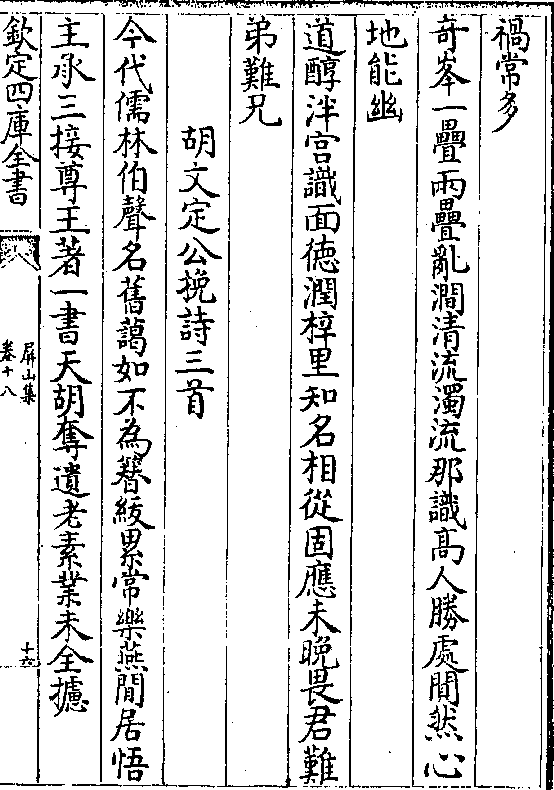 禍常多
奇峯一疊兩疊亂澗清流濁流那識髙人勝處閒然心
地能幽
道醇泮宫識面徳潤梓里知名相從固應未晚畏君難
弟難兄
胡文定公挽詩三首
今代儒林伯聲名舊藹如不為簪紱累常樂燕閒居悟
主承三接尊王著一書天胡奪遺老素業未全攄
欽定四庫全書
屏山集
卷十八
十六